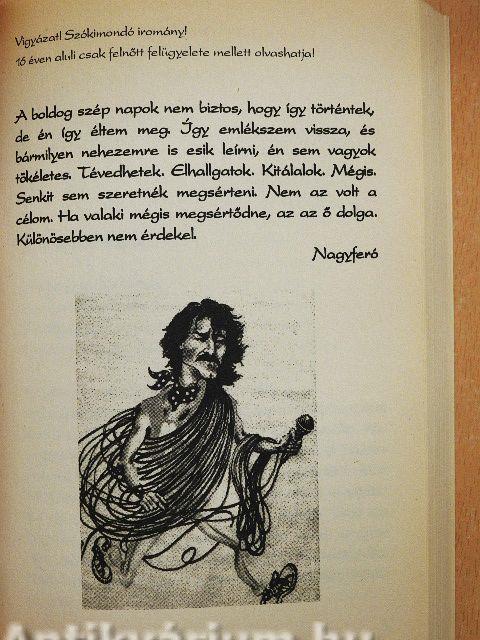 Vigyázat! Szókimondó iromány!
16 éven aluli csak felnőtt felügyelete mellett olvashatja!
A boldog szép napok nem biztos, hogy így történtek,
de én így éltem meg. Úgy emlékszem vissza, és
bármilyen nehezemre is esik leírni, én sem vagyok
tökéletes. Tévedhetek. Elhallgatok. Kitálalok. Mégis.
Senkit sem szeretnék megsérteni. Nem az volt a
célom. Ha valaki mégis megsértődne, az az ő dolga.
Különösebben nem érdekel.
Nagyferó
Antikvárium.hu